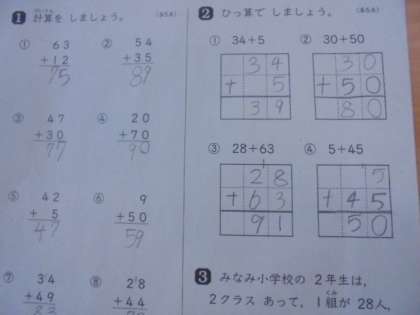 1 計算を しましょう。 (各5点)
けいさん
① 63
+12
75
② 54
+35
89
③ 47
+30
77
④ 20
+70
90
⑤ 42
+ 5
47
⑥ 9
+50
59
⑦ 34
+49
83
⑧ 28
+44
2 ひっ算で しましょう。 (各5点)
① 34+5
34
+ 5
39
② 30+50
30
+50
80
③ 28+63
1
28
+63
91
④ 5+45
5
+45
50
3 みなみ小学校の 2年生は,
くみ
2クラス あって, 1組が 28人,